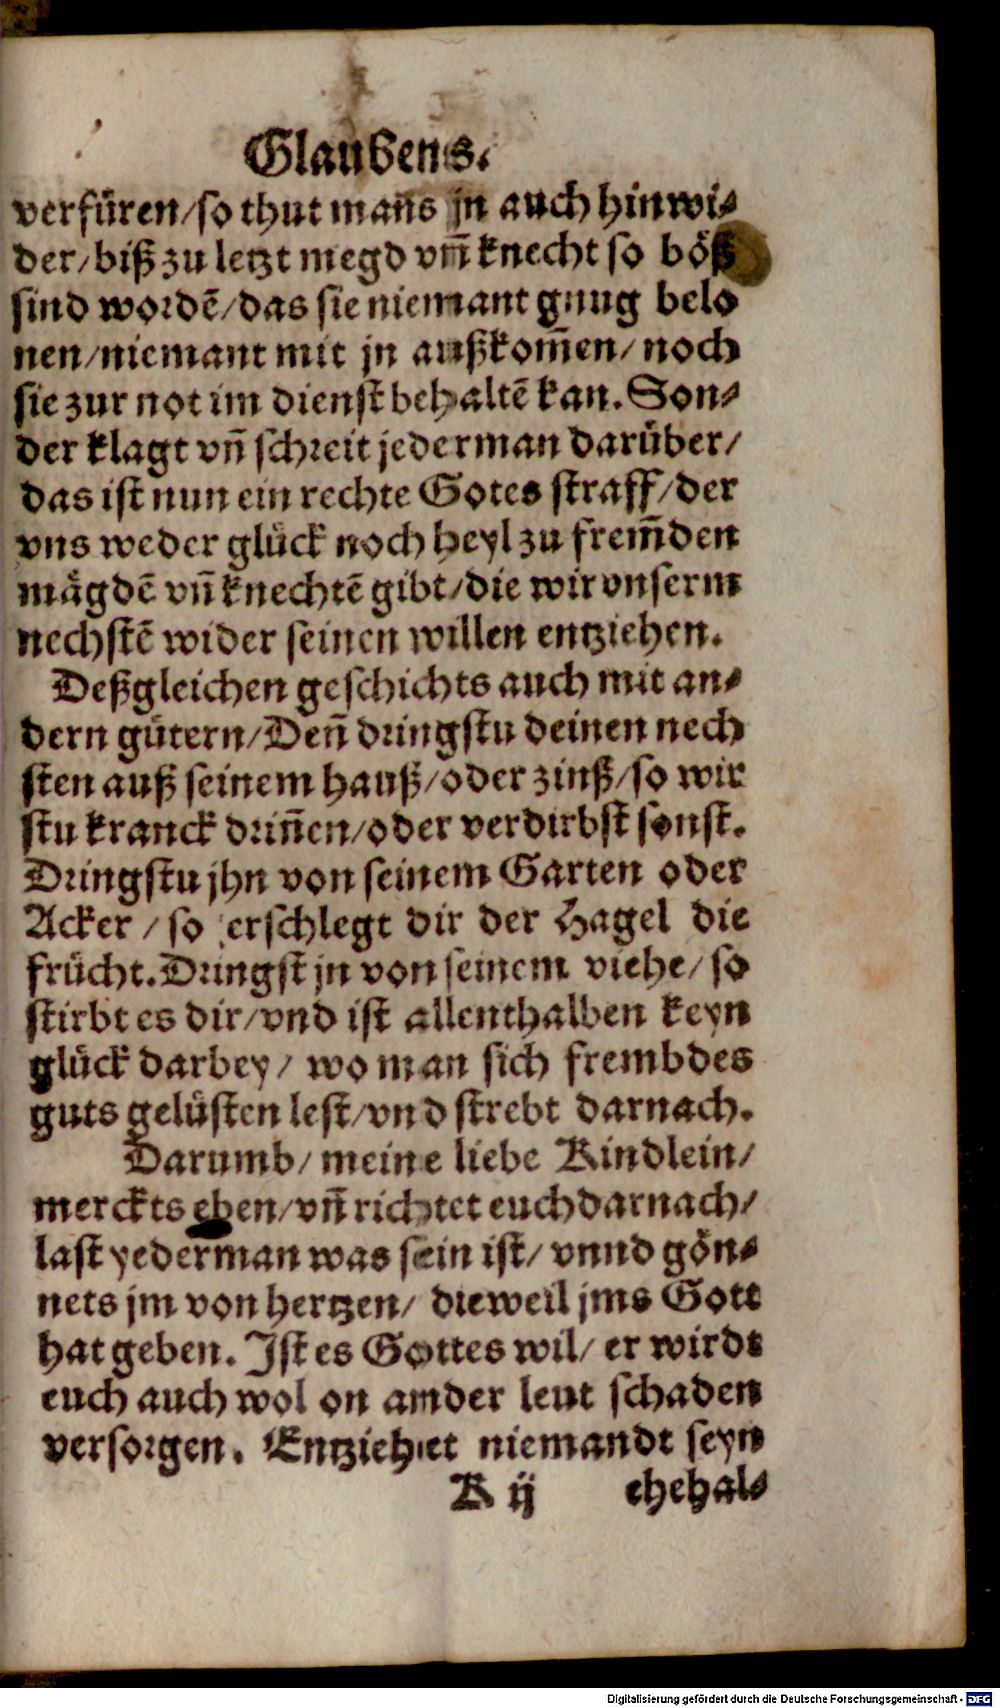 Glaubens.
verfüren/so thut mañs jn auch hinwi-
der/biß zu letzt megd vñ knecht so böß
sind wordẽ/das sie niemant gnug belo
nen/niemant mit jn außkom̃en/noch
sie zur not im dienst behaltẽ kan. Son-
der klagt vñ schreit jederman darüber/
das ist nun ein rechte Gotes straff/der
vns weder glück noch heyl zu frem̃den
mägdẽ vñ knechtẽ gibt/die wir vnserm
nechstẽ wider seinen willen entziehen.
Deßgleichen geschichts auch mit an-
dern gütern/Deñ dringstu deinen nech
sten auß seinem hauß/oder zinß/so wir
stu kranck driñen/oder verdirbst sonst.
Dringstu jhn von seinem Garten oder
Acker/so erschlegt dir der Hagel die
frücht. Dringst jn von seinem viehe/so
stirbt es dir/vnd ist allenthalben keyn
glück darbey/ wo man sich frembdes
guts gelüsten lest/vnd strebt darnach.
Darumb/ meine liebe Kindlein/
merckts eben/vñ richtet euch darnach/
last yederman was sein ist/ vnnd gön-
nets jm von hertzen/ dieweil jms Gott
hat geben. Ist es Gottes wil/ er wirdt
euch auch wol on ander leut schaden
versorgen. Entziehet niemandt seyn
K ij ehehal-
Digitalisierung gefördert durch die Deutsche Forschungsgemeinschaft - DFG